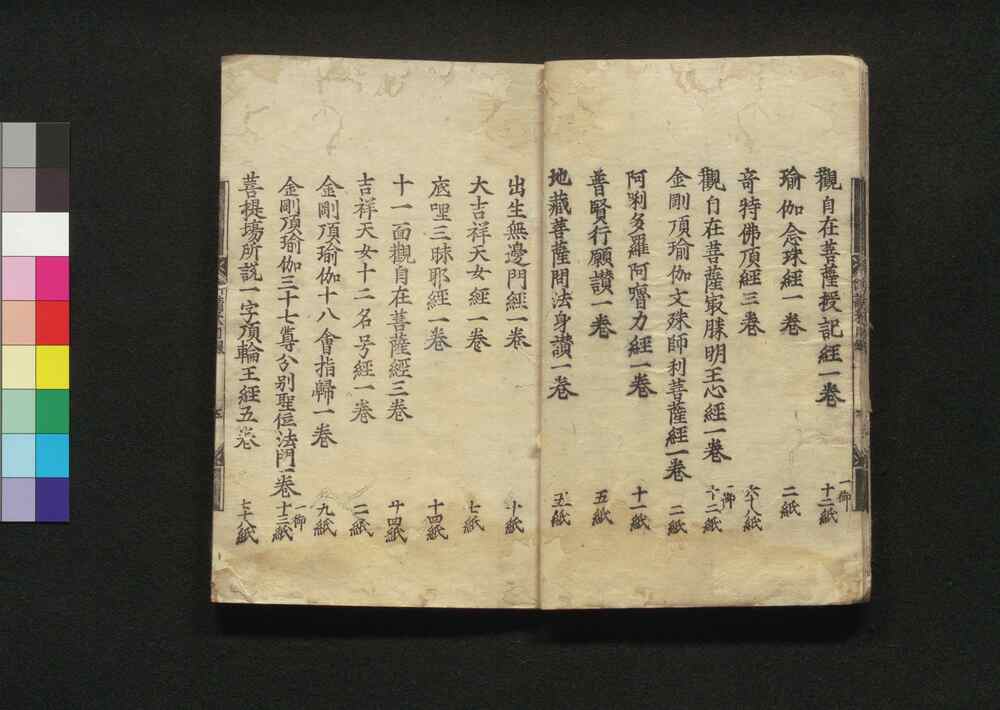 觀自在菩薩授記經一卷 一御 十二紙
瑜伽念珠經一卷 二紙
竒特佛頂經三卷 六十八紙
觀自在菩薩㝡勝明王心經一卷 一御 十二紙
金剛頂瑜伽文殊師利菩薩經一卷 二紙
阿唎多羅阿嚕力經一卷 十一紙
普賢行願讃一卷 五紙
地藏菩薩問法身讃一卷 五紙
出生無邊門經一卷 十紙
大吉祥天女經一卷 七紙
底哩三昧耶經一卷 十四紙
十一面觀自在菩薩經三卷 廿四紙
吉祥天女十二名号經一卷 二紙
金剛頂瑜伽十八會指歸一卷 九紙
金剛頂瑜伽三十七尊分别聖位法門一卷 一御 十三紙
菩提場所説一字頂輪王經五卷 七十八紙